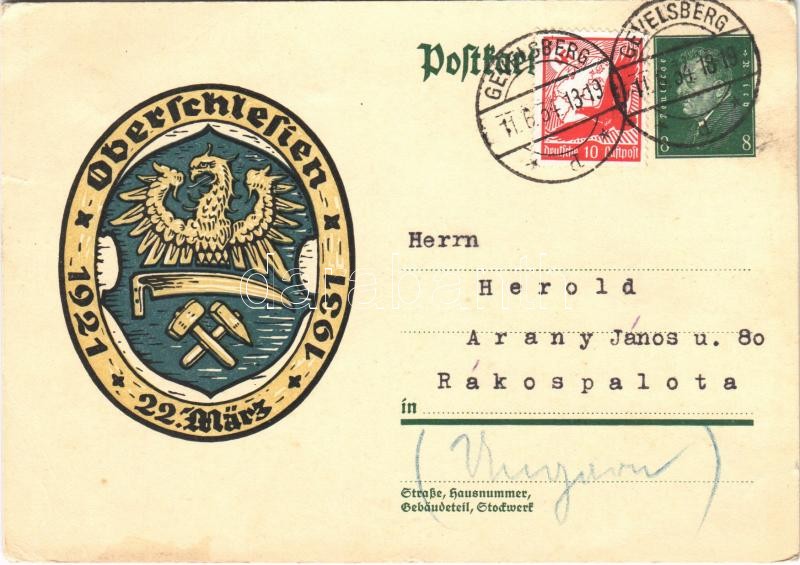 Postkart
GEVELSBERG
11.6.34.13-19
d
Deutsche 10 Luftpost
GEVELSBERG
34.18-19
d
Deutsches Reich
8 8
Oberschlesien
1921 1931
22. März
Herrn
Herold
Arany János u. 80
Rákospalota
in
(Ungarn)
Straße, Hausnummer,
Gebäudeteil, Stockwerk
darabanth